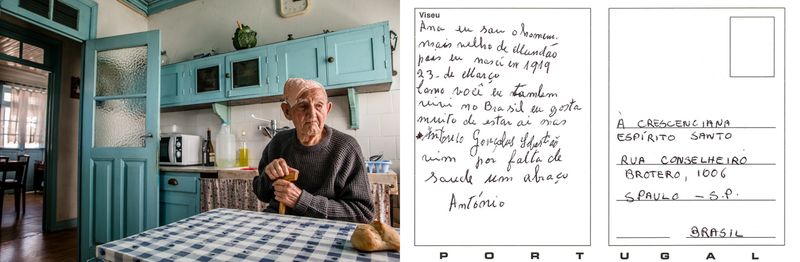 Viseu
Ana eu sou o homem
mais velho de Mundão
pois eu nasci em 1919
23- de Março
Como você eu tambem
vivi no Brasil eu gosta
muito de estar ai mas
António Gonçalves
vim por falta de
saude um abraço
António
À CRESCENCIANA
ESPÍRITO SANTO
RUA CONSELHEIRO
BROTERO, 1006
SPAULO - S.P.
BRASIL
PORTUGAL